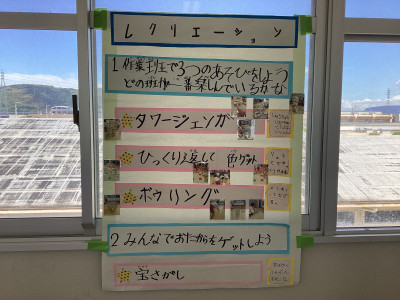 レクリエーション
1 作業班で3つのあそびをしよう
どの班が一番楽しんでいるかな
タワージェンガ
ひっくり返して 色ゲット
ボウリング
2 みんなでおたからをゲットしよう
宝さがし